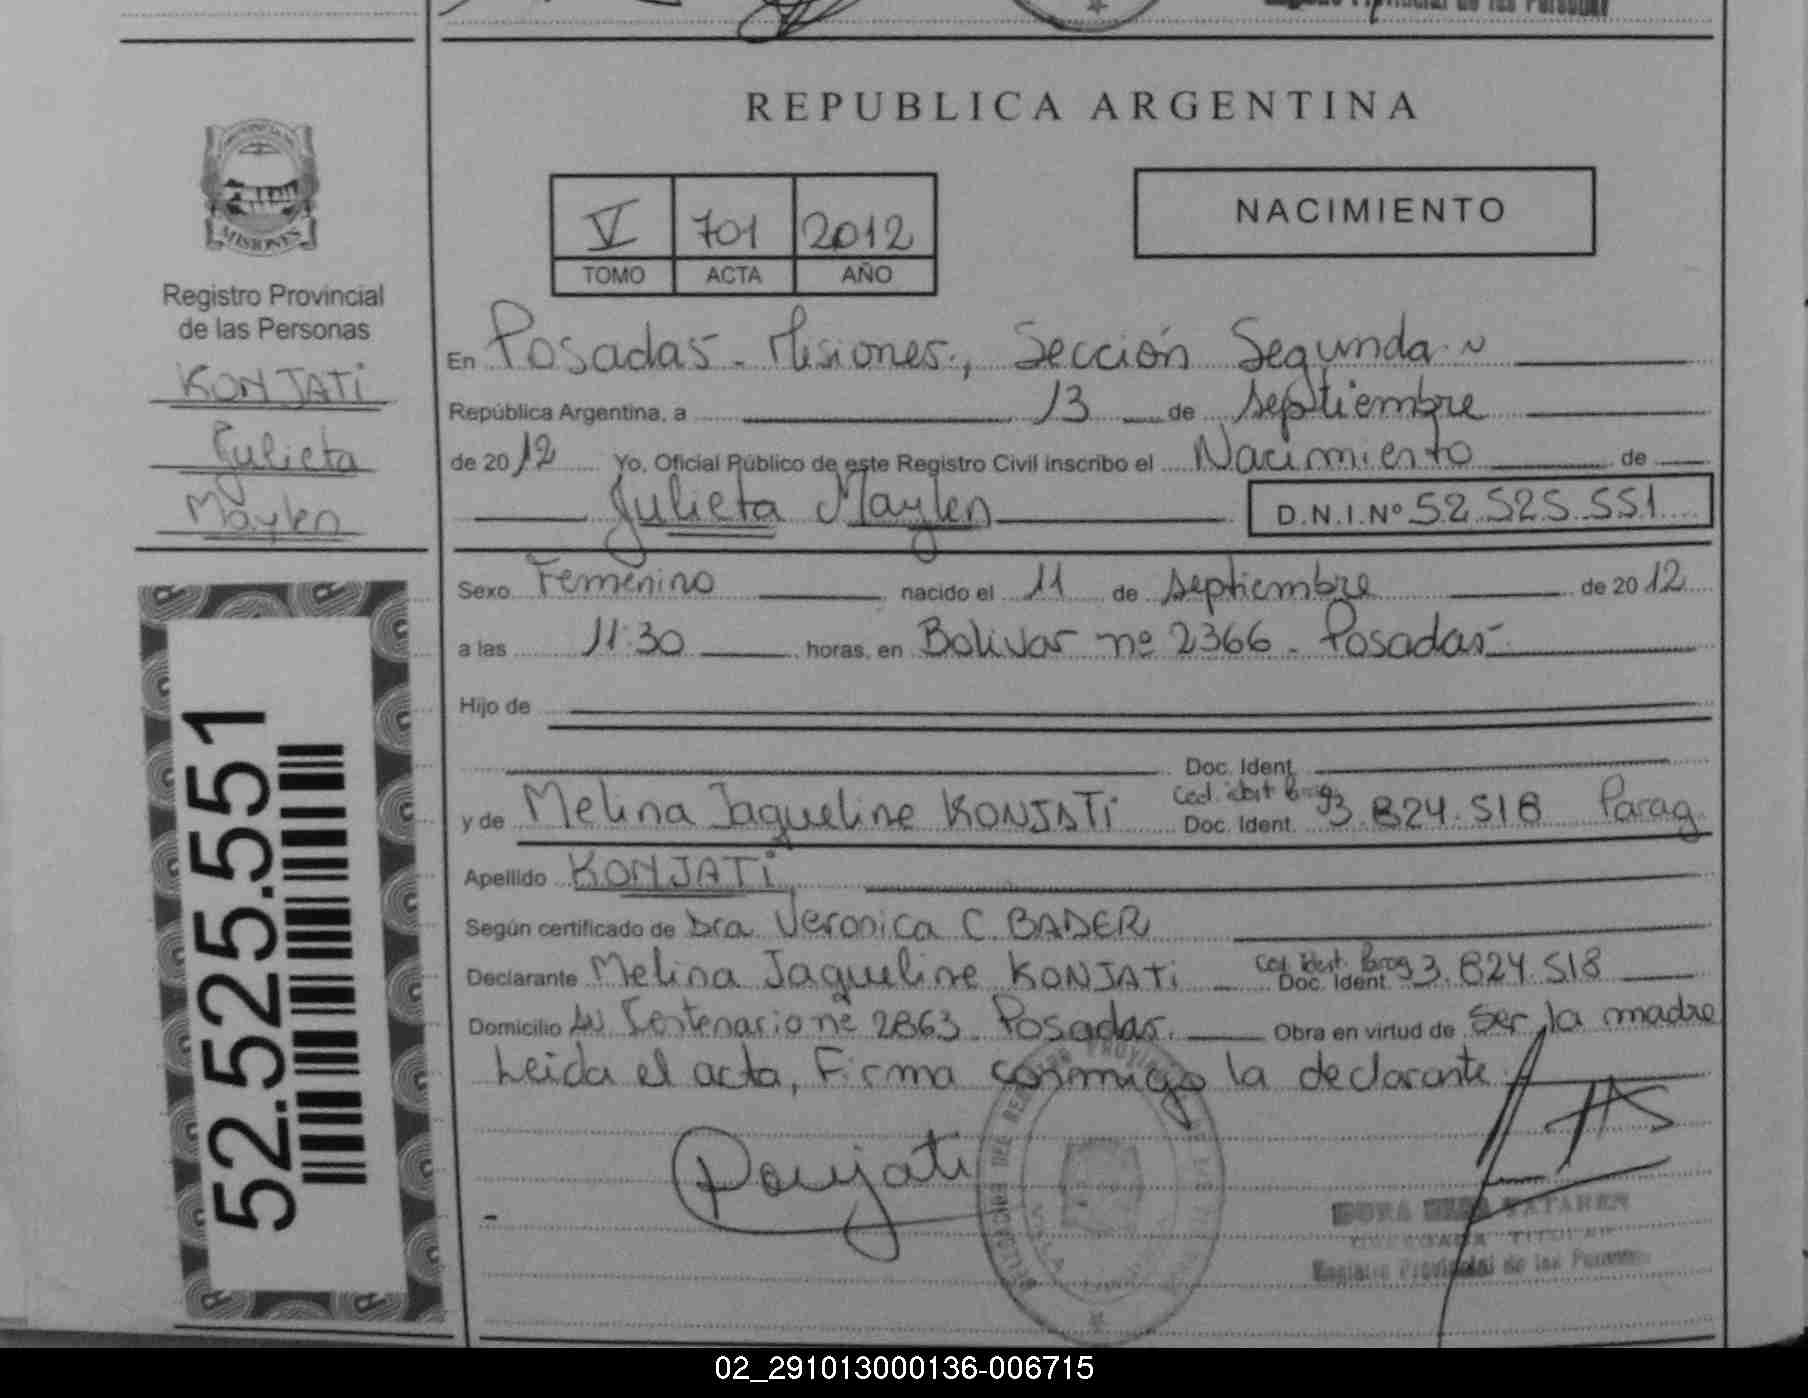 REPUBLICA ARGENTINA
MISIONES
Registro Provincial
de las Personas
KONJATI
Julieta
Maylen
52.525.551
V 701 2012
TOMO ACTA AÑO
NACIMIENTO
En Posadas - Misiones, Sección Segunda
República Argentina, a 13 de septiembre
de 2012 Yo, Oficial Público de este Registro Civil inscribo el Nacimiento de
Julieta Maylen D.N.I.Nº 52.525.551
Sexo Femenino nacido el 11 de septiembre de 2012
a las 11:30 horas, en Bolivar nº 2366 - Posadas
Hijo de
Doc. Ident.
Ced. ident Parag
y de Melina Jaqueline KONJATI Doc. Ident. 3.824.518 Parag
Apellido KONJATI
Según certificado de Dra Veronica C BADER
Declarante Melina Jaqueline KONJATI Ced. ident. Parag Doc. Ident. 3.824.518
Domicilio Av Centenario nº 2863 Posadas. Obra en virtud de ser la madre
Leida el acta, Firma conmigo la declarante
Konjati
Registro Provincial de las Personas
02_291013000136-006715